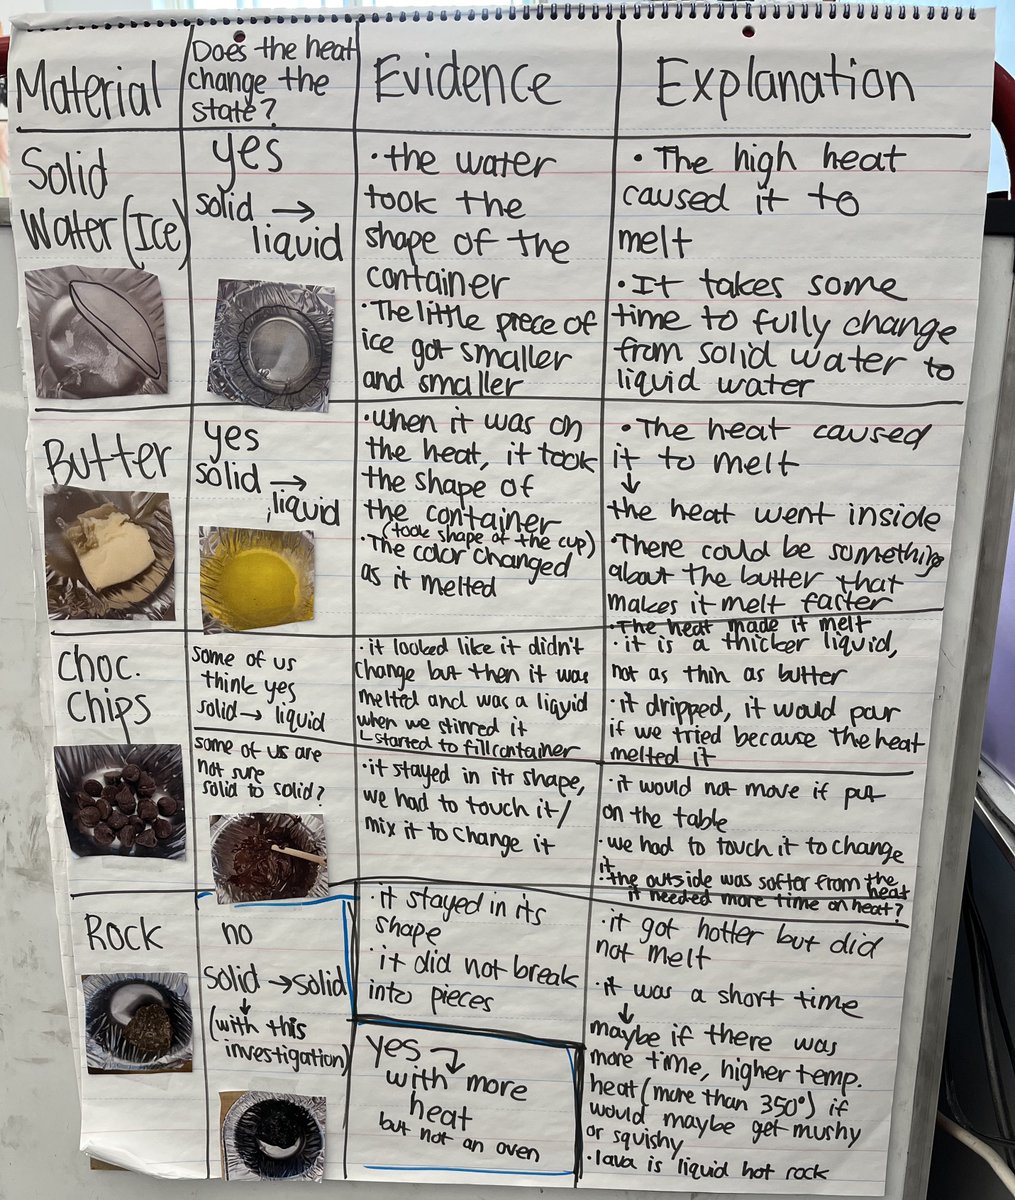 Material
Does the heat
change the
state?
Evidence
Explanation
Solid
Water (Ice)
yes
solid →
liquid
• the water
took the
shape of the
container
• The little piece of
ice got smaller
and smaller
• The high heat
caused it to
melt
• It takes some
time to fully change
from solid water to
liquid water
Butter
yes
solid →
liquid
• when it was on
the heat, it took
the shape of
the container
(took shape of the cup)
• The color changed
as it melted
• The heat caused
it to melt
↓
the heat went inside
• There could be something
about the butter that
makes it melt faster
Choc.
Chips
some of us
think yes
solid → liquid
• it looked like it didn't
change but then it was
melted and was a liquid
when we stirred it
↳ started to fill container
• The heat made it melt
• it is a thicker liquid,
not as thin as butter
• it dripped, it would pour
if we tried because the heat
melted it
some of us are
not sure
solid to solid?
• it stayed in its shape,
we had to touch it/
mix it to change it
• it would not move if put
on the table
• we had to touch it to change
it
• the outside was softer from the
heat
it needed more time on heat?
Rock
no
solid → solid
↓
(with this
investigation)
• it stayed in its
shape
• it did not break
into pieces
yes
with more
heat
but not an oven
• it got hotter but did
not melt
• it was a short time
↓
maybe if there was
more time, higher temp.
heat (more than 350°) it
would maybe get mushy
or squishy
• lava is liquid hot rock